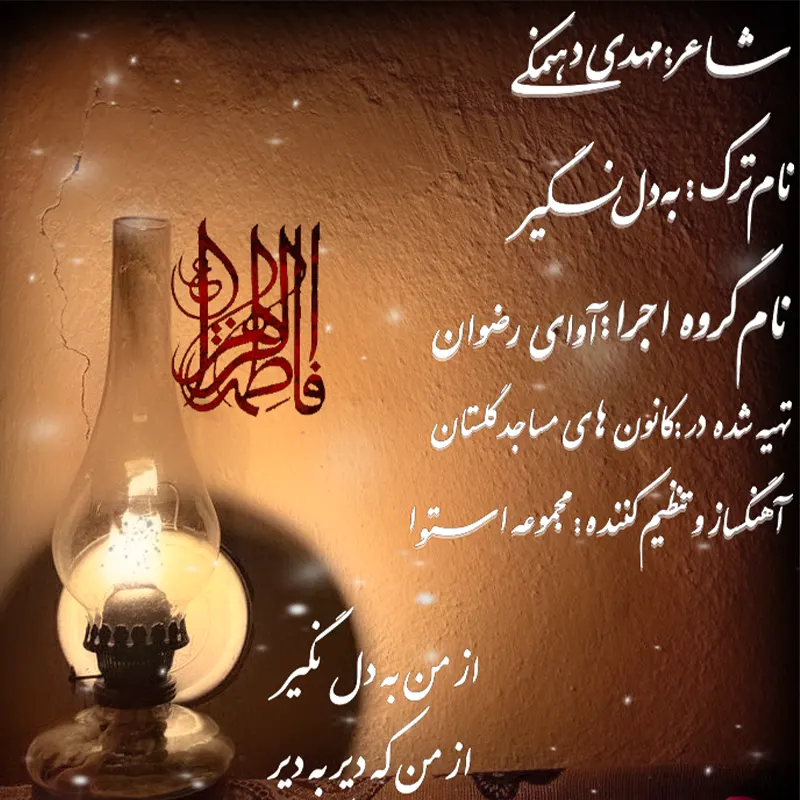 شاعر: مهدی دهمکی
نام ترک: به دل نگیر
نام گروه اجرا: آوای رضوان
فاطمة الزهراء
تهیه شده در: کانون های مساجد گلستان
آهنگساز و تنظیم کننده: مجموعه استوا
از من به دل نگیر
از من که دیر به دیر